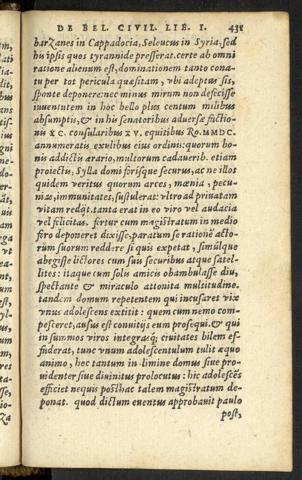 DE BEL. CIVIL. LIB. I. 431
barZanes in Cappadocia, Seleucus in Syria, sed
hu ipsis quos tyrannide presserat. certe ab omni
ratione alienum est, dominationem tanto cona-
tu per tot pericula quæsitam, vbi adeptus sis,
sponte deponere: nec minus mirum non defecisse
iuuentutem in hoc bello plus centum milibus
absumptis, & in his senatoribus aduersæ factio-
nis XC. consularibus XV. equitibus Ro. MMDC.
annumeratis exulibus eius ordinis: quorum bo-
nis addictis ærario, multorum cadauerib. etiam
proiectis, Sylla domi forisque securus, ac ne illos
quidem veritus quorum arces, mœnia, pecu-
nias, immunitates, sustulerat: vltro ad priuatam
vitam redijt. tanta erat in eo viro vel audacia
vel felicitas. fertur cum magistratum in medio
foro deponeret dixisse, paratum se rationē acto-
rum suorum reddere si quis expetat, simulque
abegisse lictores cum suis securibus atque satel-
lites: itaque cum solis amicis obambulasse diu,
spectante & miraculo attonita multitudine.
tandem domum repetentem qui incusaret vix
vnus adolescens extitit: quem cum nemo com-
pesceret, ausus est conuitijs eum prosequi. & qui
in summos viros integrasq; ciuitates bilem ef-
fuderat, tunc vnum adolescentulum tulit æquo
animo, hoc tantum in limine domus siue pro-
uidenter siue diuinitus prolocutus: hic adolescēs
efficiet nequis posthac talem magistratum de-
ponat. quod dictum euentus approbauit paulo
post,